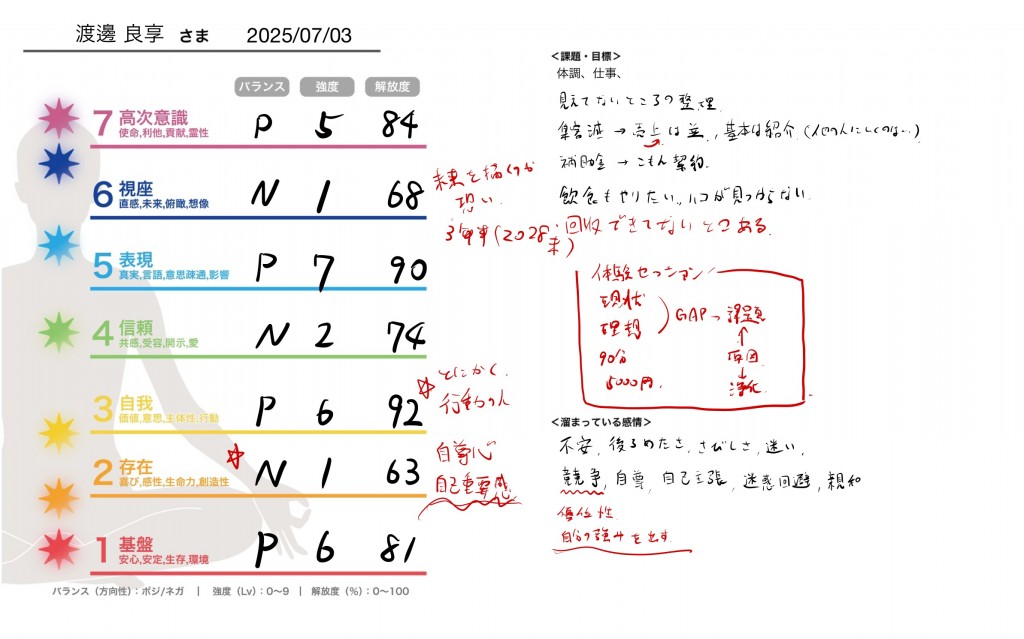 渡邊 良享 さま 2025/07/03
バランス 強度 解放度
7 高次意識 P 5 84
使命,利他,貢献,霊性
6 視座 N 1 68
直感,未来,俯瞰,想像
5 表現 P 7 90
真実,言語,意思疎通,影響
4 信頼 N 2 74
共感,受容,開示,愛
3 自我 P 6 92
価値,意思,主体性,行動
2 存在 N 1 63
喜び,感性,生命力,創造性
1 基盤 P 6 81
安心,安定,生存,環境
バランス（方向性）：ポジ/ネガ | 強度（Lv）：0〜9 | 解放度（%）：0〜100
未来を描くのが
恐い
3年半(2028年末)
とにかく
行動の人
自尊心
自己重要感
＜課題・目標＞
体調、仕事、
見えてないところの整理
集客減 → 売上は並、基本は紹介
補助金 → こもん契約
飲食もやりたい、ハコが見つからない
回収できてないとこある
体験セッション
現状
理想
GAP → 課題
90分
原因
5000円
浄化
＜溜まっている感情＞
不安, 後ろめたさ, さびしさ, 迷い,
競争, 自尊, 自己主張, 迷惑回避, 親和
優位性
自分の強みを出す